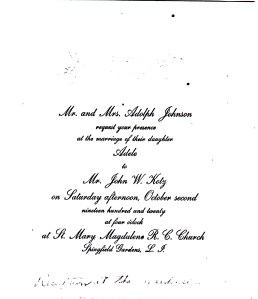 Mr. and Mrs. Adolph Johnson
request your presence
at the marriage of their daughter
Adele
to
Mr. John W. Kotz
on Saturday afternoon, October second
nineteen hundred and twenty
at four o'clock
at St. Mary Magdalene R. C. Church
Springfield Gardens, L. I.
at the